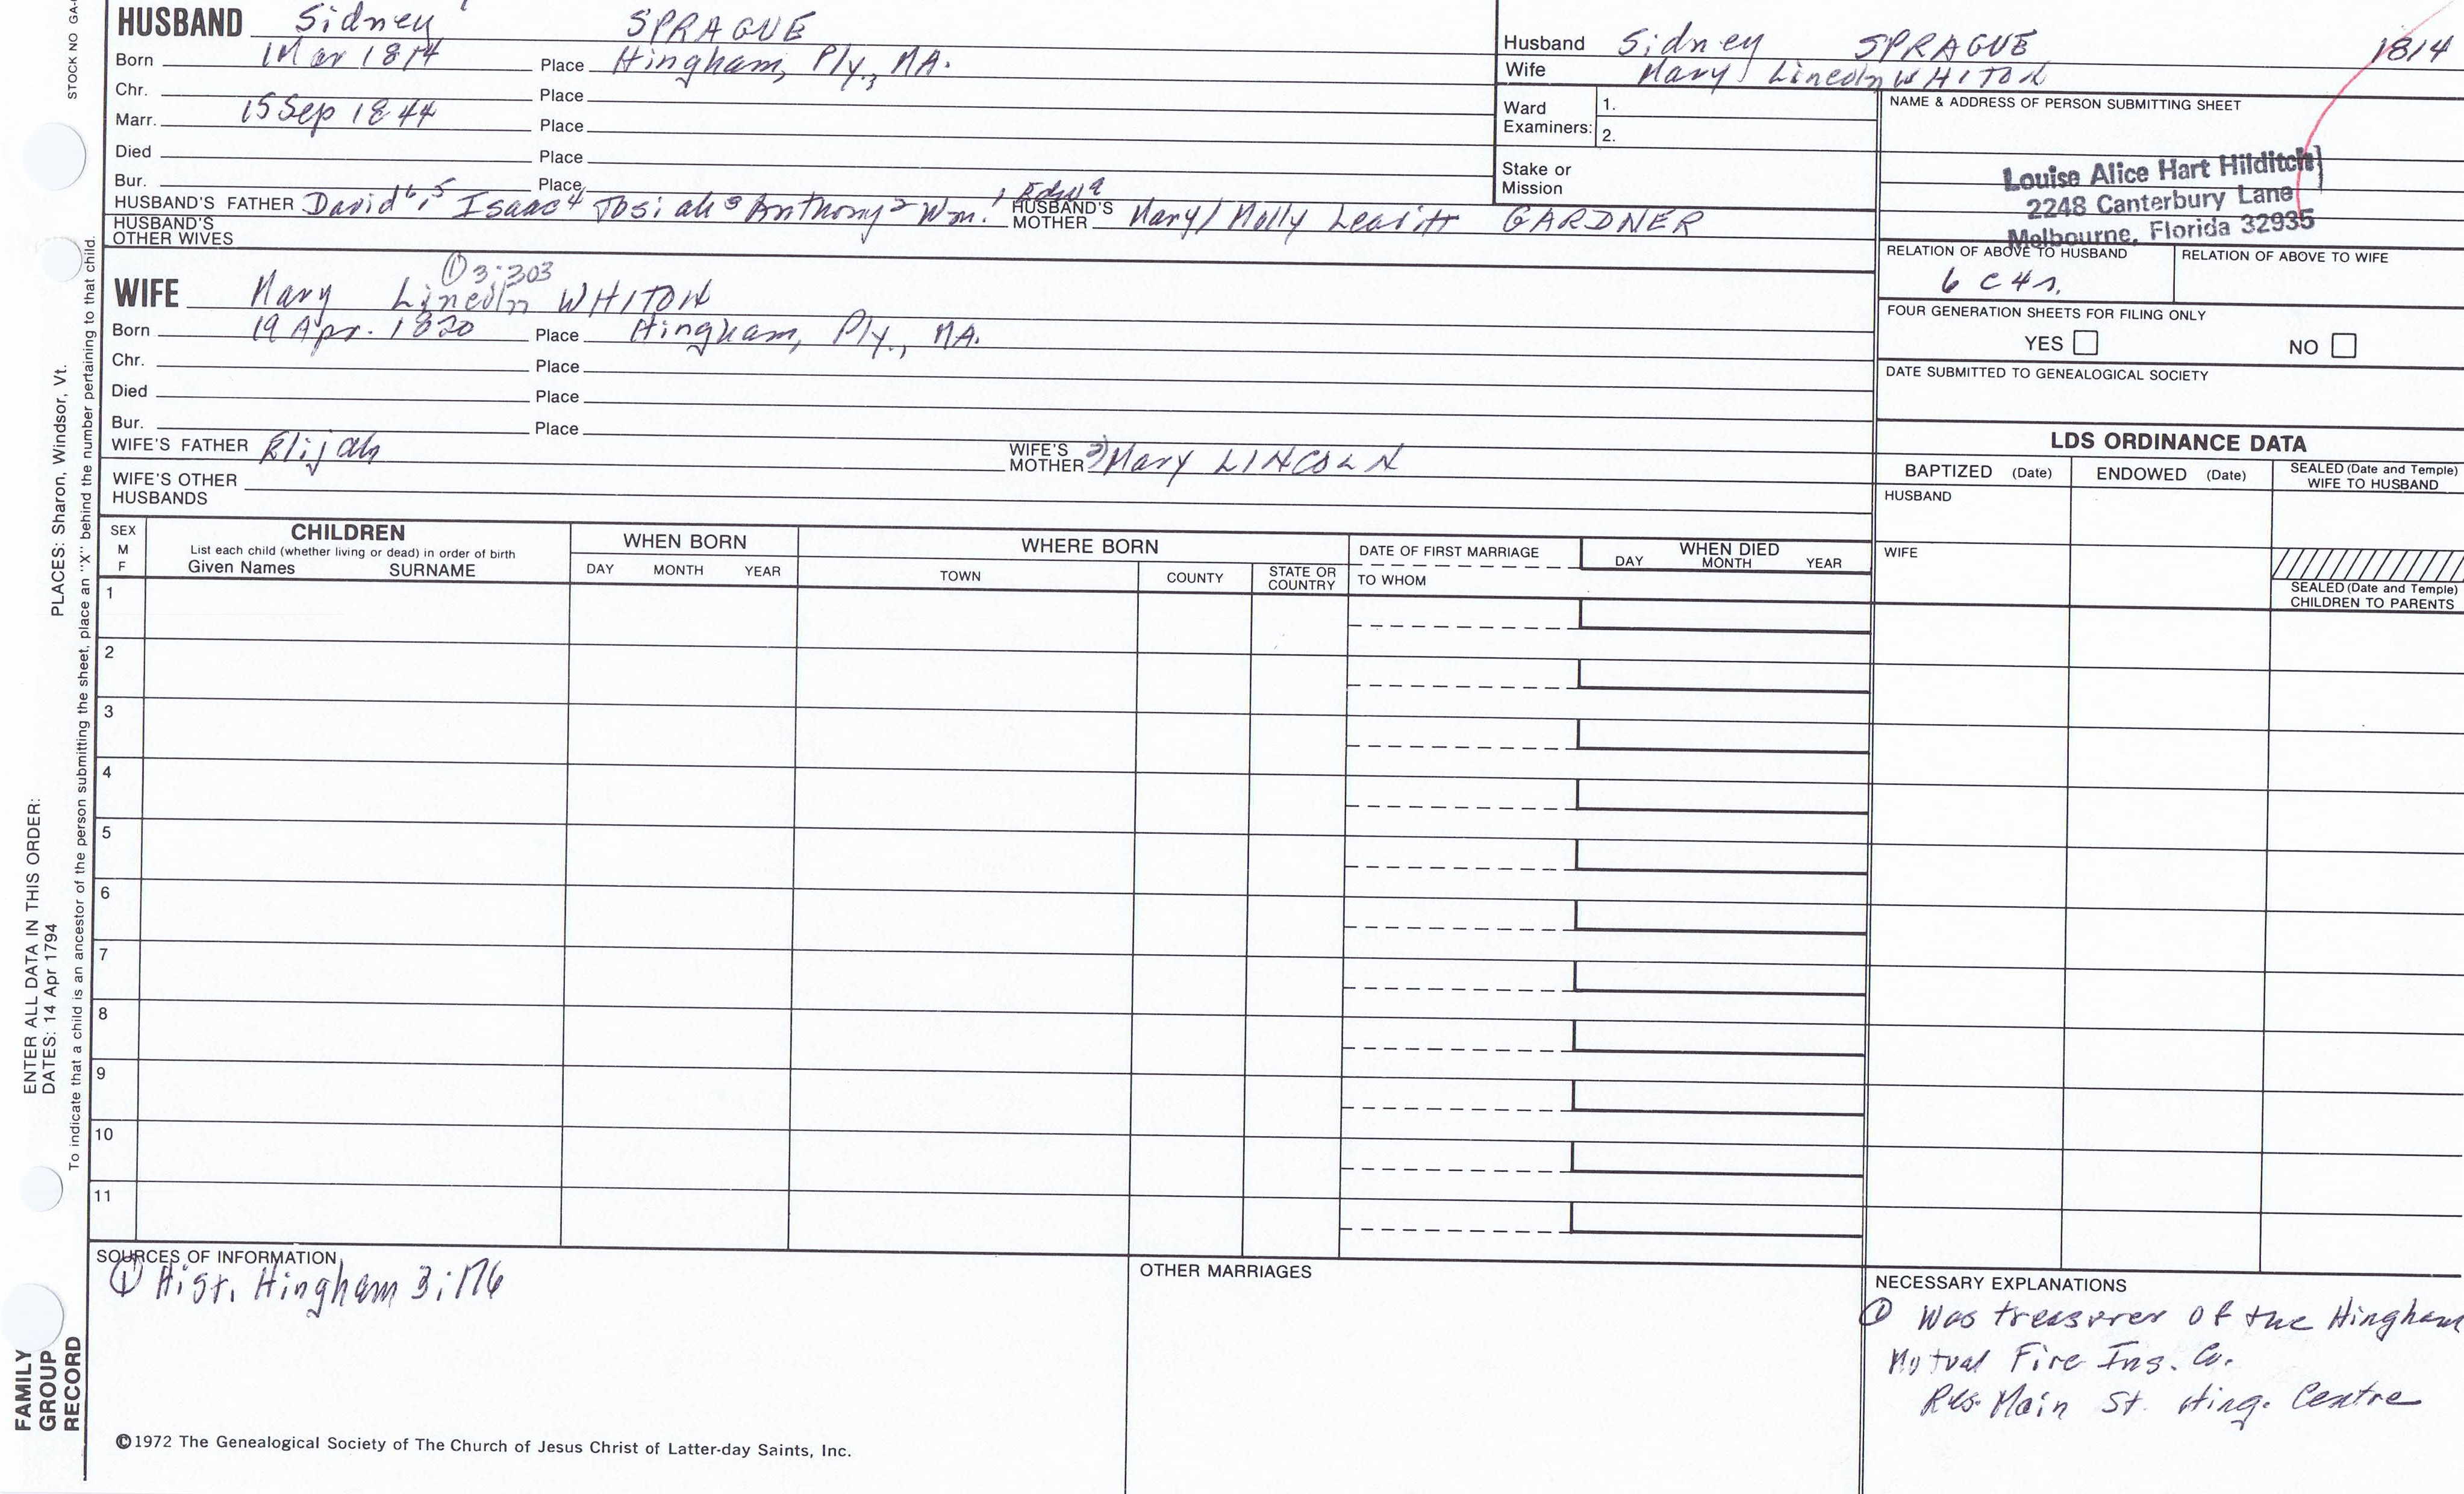 STOCK NO GA-
HUSBAND Sidney SPRAGUE
Born 1 Mar 1814 Place Hingham, Ply., MA.
Chr. Place
Marr. 15 Sep 1844 Place
Died Place
Bur. Place
HUSBAND'S FATHER David 6, 5 Isaac 4 Josiah 3 Anthony 2 Wm. 1 HUSBAND'S MOTHER Mary/Molly Leavitt GARDNER
HUSBAND'S OTHER WIVES
① 3:303
WIFE Mary Lincoln WHITON
Born 19 Apr. 1820 Place Hingham, Ply., MA.
Chr. Place
Died Place
Bur. Place
WIFE'S FATHER Elijah WIFE'S MOTHER 3) Mary LINCOLN
WIFE'S OTHER HUSBANDS
Husband Sidney SPRAGUE 1814
Wife Mary Lincoln WHITON
Ward Examiners: 1.
2.
Stake or Mission
NAME & ADDRESS OF PERSON SUBMITTING SHEET
Louise Alice Hart Hilditch
2248 Canterbury Lane
Melbourne, Florida 32935
RELATION OF ABOVE TO HUSBAND RELATION OF ABOVE TO WIFE
6 c 4 r.
FOUR GENERATION SHEETS FOR FILING ONLY
YES NO
DATE SUBMITTED TO GENEALOGICAL SOCIETY
LDS ORDINANCE DATA
BAPTIZED (Date) ENDOWED (Date) SEALED (Date and Temple) WIFE TO HUSBAND
HUSBAND
WIFE
SEALED (Date and Temple) CHILDREN TO PARENTS
SEX M F
CHILDREN
List each child (whether living or dead) in order of birth
Given Names SURNAME
WHEN BORN
DAY MONTH YEAR
WHERE BORN
TOWN COUNTY STATE OR COUNTRY
DATE OF FIRST MARRIAGE
TO WHOM
WHEN DIED
DAY MONTH YEAR
1
2
3
4
5
6
7
8
9
10
11
SOURCES OF INFORMATION
① Hist. Hingham 3:176
OTHER MARRIAGES
NECESSARY EXPLANATIONS
① Was treasurer of the Hingham
Mutual Fire Ins. Co.
Res. Main St. Hing. Centre
©1972 The Genealogical Society of The Church of Jesus Christ of Latter-day Saints, Inc.
FAMILY
GROUP
RECORD
ENTER ALL DATA IN THIS ORDER:
DATES: 14 Apr 1794
PLACES: Sharon, Windsor, Vt.
To indicate that a child is an ancestor of the person submitting the sheet, place an "X" behind the number pertaining to that child.